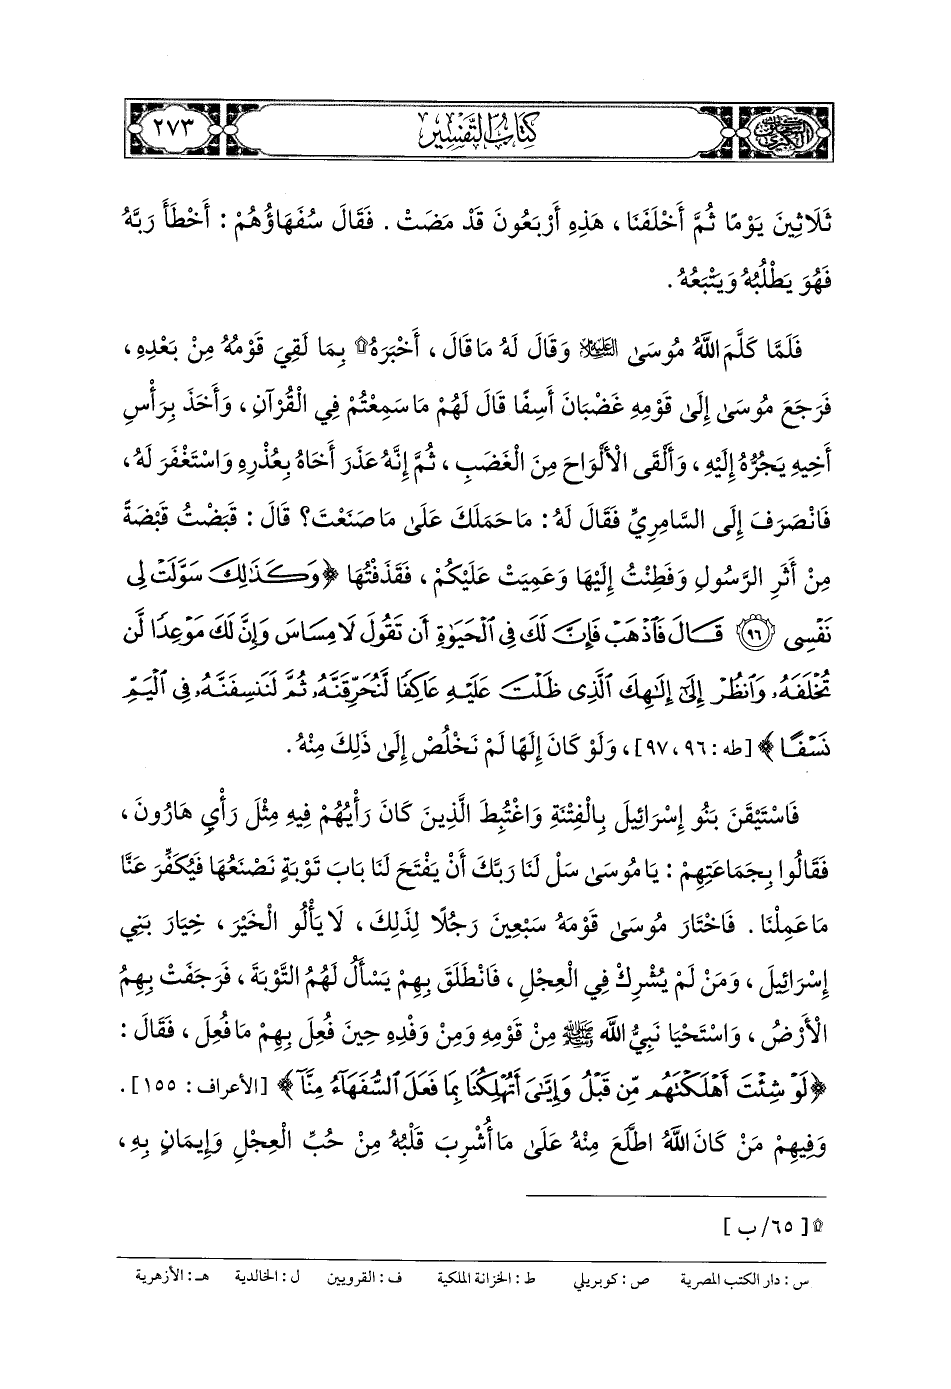 كتاب التفسير
٢٧٣
ثَلَاثِينَ يَوْمًا ثُمَّ أَخْلَفَنَا ، هَذِهِ أَرْبَعُونَ قَدْ مَضَتْ . فَقَالَ سُفَهَاؤُهُمْ : أَخْطَأَ رَبَّهُ
فَهُوَ يَطْلُبُهُ وَيَتْبَعُهُ .
فَلَمَّا كَلَّمَ اللَّهُ مُوسَى عليه السلام وَقَالَ لَهُ مَا قَالَ ، أَخْبَرَهُ۩ بِمَا لَقِيَ قَوْمُهُ مِنْ بَعْدِهِ ،
فَرَجَعَ مُوسَى إِلَى قَوْمِهِ غَضْبَانَ أَسِفًا قَالَ لَهُمْ مَا سَمِعْتُمْ فِي الْقُرْآنِ ، وَأَخَذَ بِرَأْسِ
أَخِيهِ يَجُرُّهُ إِلَيْهِ ، وَأَلْقَى الْأَلْوَاحَ مِنَ الْغَضَبِ ، ثُمَّ إِنَّهُ عَذَرَ أَخَاهُ بِعُذْرِهِ وَاسْتَغْفَرَ لَهُ ،
فَانْصَرَفَ إِلَى السَّامِرِيِّ فَقَالَ لَهُ : مَا حَمَلَكَ عَلَى مَا صَنَعْتَ؟ قَالَ : قَبَضْتُ قَبْضَةً
مِنْ أَثَرِ الرَّسُولِ وَفَطِنْتُ إِلَيْهَا وَعَمِيَتْ عَلَيْكُمْ ، فَقَذَفْتُهَا ﴿وَكَذَٰلِكَ سَوَّلَتْ لِي
نَفْسِي ٩٦ قَالَ فَٱذْهَبْ فَإِنَّ لَكَ فِي ٱلْحَيَوٰةِ أَن تَقُولَ لَا مِسَاسَ وَإِنَّ لَكَ مَوْعِدًا لَّن
تُخْلَفَهُۥ وَٱنظُرْ إِلَىٰٓ إِلَٰهِكَ ٱلَّذِي ظَلْتَ عَلَيْهِ عَاكِفًا لَّنُحَرِّقَنَّهُۥ ثُمَّ لَنَنسِفَنَّهُۥ فِي ٱلْيَمِّ
نَسْفًا﴾ [طه : ٩٦ ، ٩٧] ، وَلَوْ كَانَ إِلَهًا لَمْ نَخْلُصْ إِلَى ذَلِكَ مِنْهُ .
فَاسْتَيْقَنَ بَنُو إِسْرَائِيلَ بِالْفِتْنَةِ وَاغْتُبِطَ الَّذِينَ كَانَ رَأْيُهُمْ فِيهِ مِثْلَ رَأْيِ هَارُونَ ،
فَقَالُوا بِجَمَاعَتِهِمْ : يَا مُوسَى سَلْ لَنَا رَبَّكَ أَنْ يَفْتَحَ لَنَا بَابَ تَوْبَةٍ نَصْنَعُهَا فَيُكَفِّرَ عَنَّا
مَا عَمِلْنَا . فَاخْتَارَ مُوسَى قَوْمَهُ سَبْعِينَ رَجُلًا لِذَلِكَ ، لَا يَأْلُو الْخَيْرَ ، خِيَارَ بَنِي
إِسْرَائِيلَ ، وَمَنْ لَمْ يُشْرِكْ فِي الْعِجْلِ ، فَانْطَلَقَ بِهِمْ يَسْأَلُ لَهُمُ التَّوْبَةَ ، فَرَجَفَتْ بِهِمُ
الْأَرْضُ ، وَاسْتَحْيَا نَبِيُّ اللَّهِ ﷺ مِنْ قَوْمِهِ وَمِنْ وَفْدِهِ حِينَ فُعِلَ بِهِمْ مَا فُعِلَ ، فَقَالَ :
﴿لَوْ شِئْتَ أَهْلَكْتَهُم مِّن قَبْلُ وَإِيَّٰيَ أَتُهْلِكُنَا بِمَا فَعَلَ ٱلسُّفَهَآءُ مِنَّآ﴾ [الأعراف : ١٥٥] .
وَفِيهِمْ مَنْ كَانَ اللَّهُ اطَّلَعَ مِنْهُ عَلَى مَا أُشْرِبَ قَلْبُهُ مِنْ حُبِّ الْعِجْلِ وَإِيمَانٍ بِهِ ،
۩ [ ٦٥/ ب ]
س : دار الكتب المصرية ص : كوبريلي ط : الخزانة الملكية ف : القرويين ل : الخالدية هـ : الأزهرية